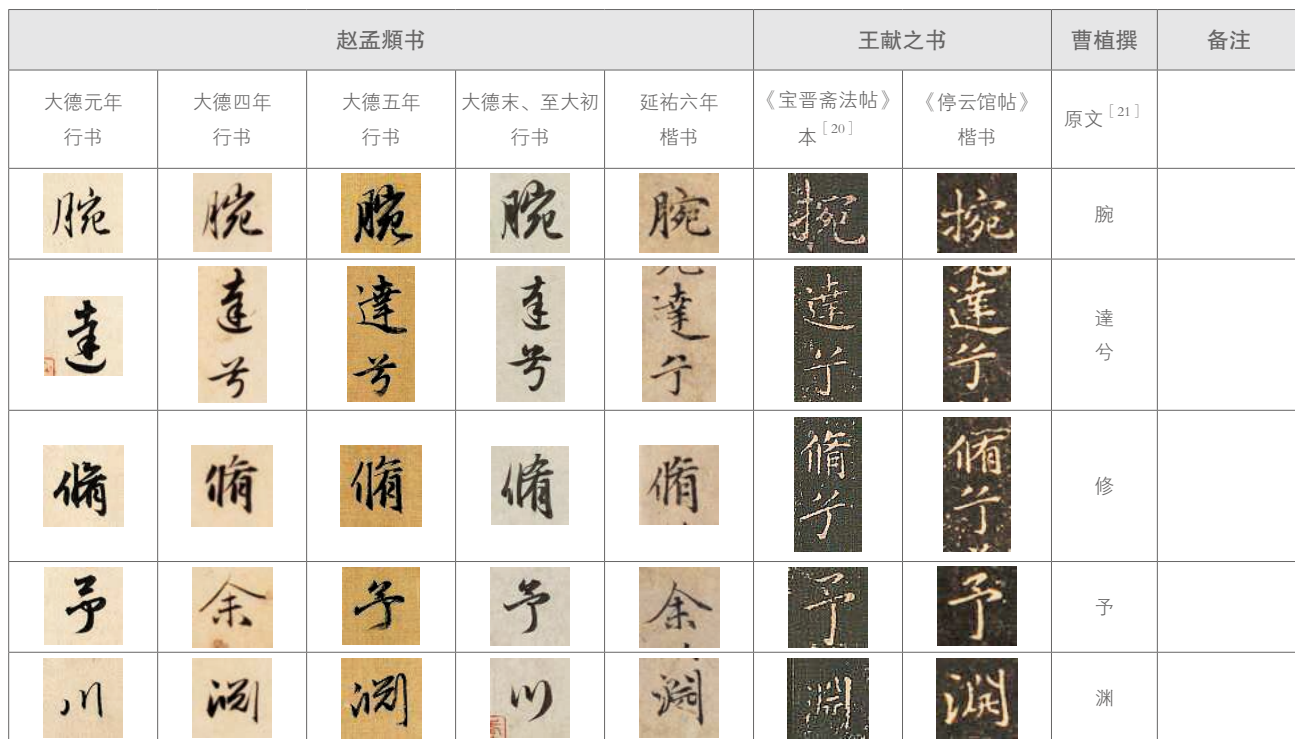 赵孟頫书 王献之书 曹植撰 备注
大德元年 行书 大德四年 行书 大德五年 行书 大德末、至大初 行书 延祐六年 楷书 《宝晋斋法帖》本[20] 《停云馆帖》楷书 原文[21]
腕 腕 腕 腕 腕 捥 捥 腕
達 達兮 達兮 達兮 達兮 達兮 達兮 達兮
脩 脩 脩 脩 脩 脩兮 脩兮 修
予 余 予 予 余 予 予 予
川 渊 渊 川 渊 渊 渊 渊